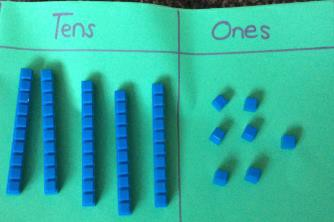 Tens Ones